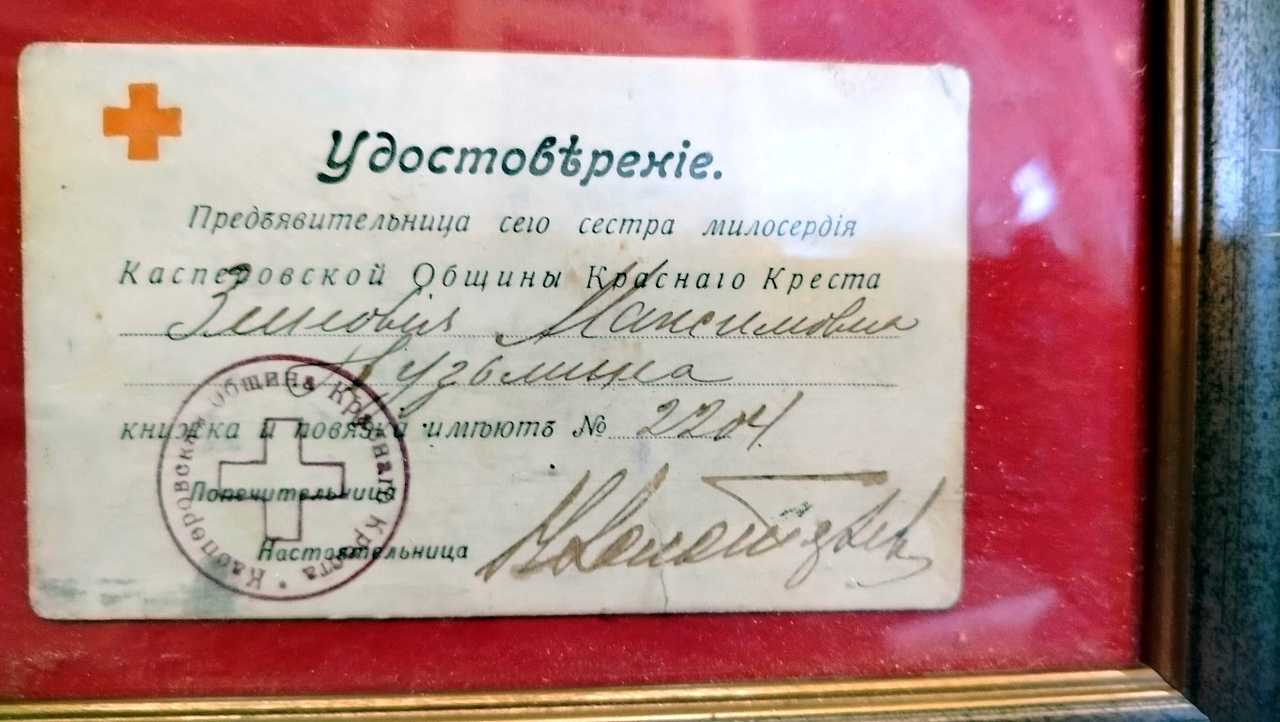 Удостовѣреніе.
Предъявительница сего сестра милосердія
Касперовской Общины Краснаго Креста
Зиновія Максимовна
Кузьмина
книжка и повязка имѣютъ № 2204
Попечительница
Настоятельница
Касперовская Община Краснаго Креста *